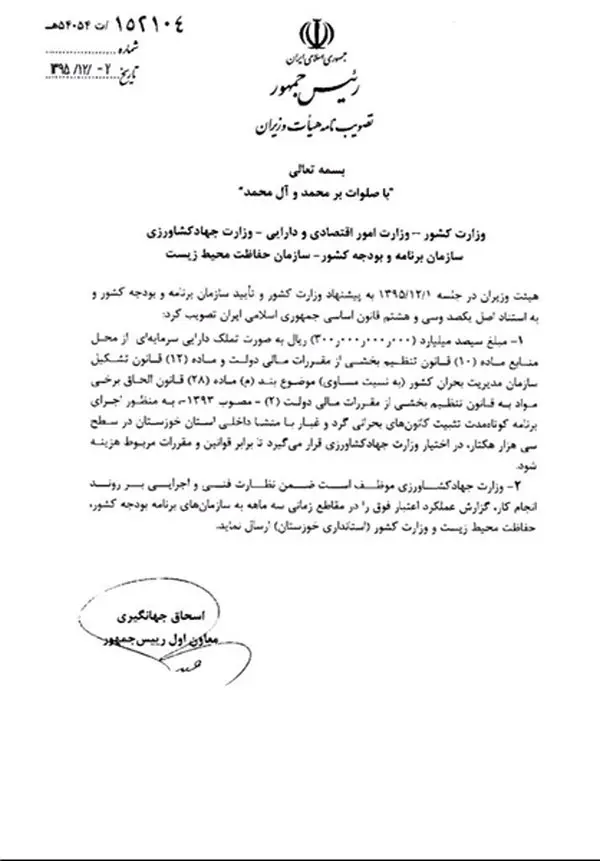 ۱۵۲۱۰۴ /ت ۵۴۰۵۴هـ
شماره
تاریخ ۱۳۹۵/۱۲/۰۲
جمهوری اسلامی ایران
رئیس جمهور
تصویب نامه هیأت وزیران
بسمه تعالی
"با صلوات بر محمد و آل محمد"
وزارت کشور – وزارت امور اقتصادی و دارایی – وزارت جهادکشاورزی
سازمان برنامه و بودجه کشور – سازمان حفاظت محیط زیست
هیئت وزیران در جلسه ۱۳۹۵/۱۲/۱ به پیشنهاد وزارت کشور و تأیید سازمان برنامه و بودجه کشور و
به استناد اصل یکصد و سی و هشتم قانون اساسی جمهوری اسلامی ایران تصویب کرد:
۱- مبلغ سیصد میلیارد (۳۰۰٫۰۰۰٫۰۰۰٫۰۰۰) ریال به صورت تملک دارایی سرمایه‌ای از محل
منابع ماده (۱۰) قانون تنظیم بخشی از مقررات مالی دولت و ماده (۱۲) قانون تشکیل
سازمان مدیریت بحران کشور (به نسبت مساوی) موضوع بند (م) ماده (۲۸) قانون الحاق برخی
مواد به قانون تنظیم بخشی از مقررات مالی دولت (۲) - مصوب ۱۳۹۳-، به منظور اجرای
برنامه کوتاه‌مدت تثبیت کانون‌های بحرانی گرد و غبار با منشا داخلی استان خوزستان در سطح
سی هزار هکتار، در اختیار وزارت جهادکشاورزی قرار می‌گیرد تا برابر قوانین و مقررات مربوط هزینه
شود.
۲- وزارت جهادکشاورزی موظف است ضمن نظارت فنی و اجرایی بر روند
انجام کار، گزارش عملکرد اعتبار فوق را در مقاطع زمانی سه ماهه به سازمان‌های برنامه بودجه کشور،
حفاظت محیط زیست و وزارت کشور (استانداری خوزستان) ارسال نماید.
اسحاق جهانگیری
معاون اول رییس‌جمهور